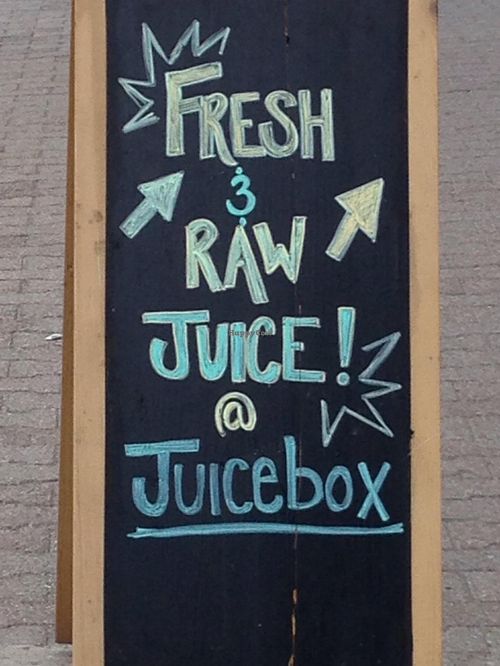 FRESH
&
RAW
JUICE!
@
Juicebox